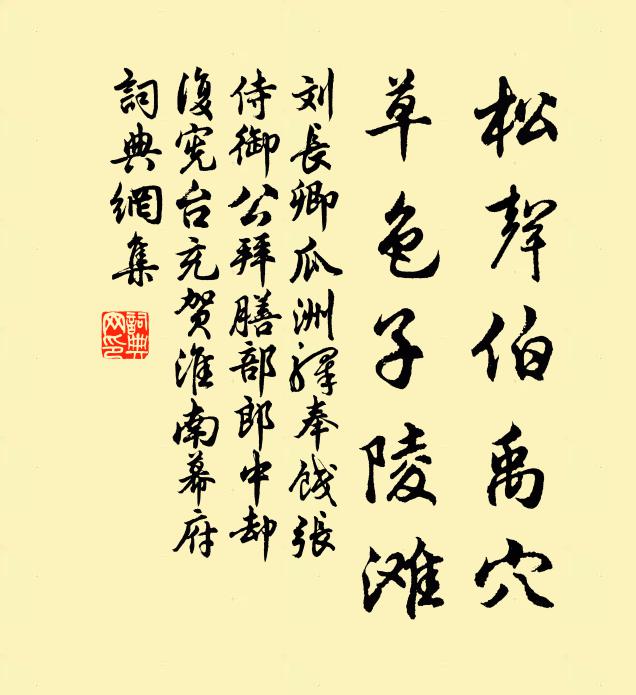 松聲伯禹穴
草色子陵滩
刘長卿瓜洲驛奉饯張
侍御公拜膳部郎中却
復宪台充贺淮南幕府
詞典網集
詞典网印